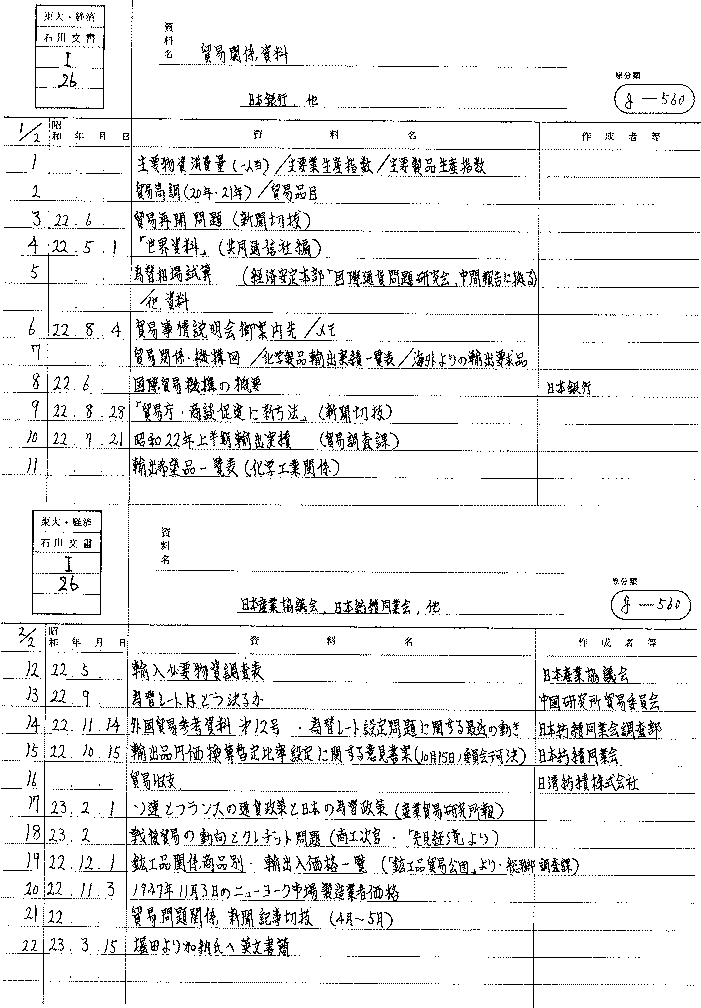 東大・経済
石川文書
I
26
資料名
貿易関係資料
日本銀行、他
原分類
g-560
1/2 昭和 年 月 日 資料名 作成者等
1 主要物資消費量(一人当)/主要業生産指数/主要製品生産指数
2 貿易高調(20年・21年)/貿易品目
3 22.6 貿易再開問題(新聞切抜)
4 22.5.1 「世界資料」(共同通信社編)
5 為替相場試算 (経済安定本部「国際通貨問題研究会、中間報告に拠る)
/他資料
6 22.8.4 貿易事情説明会御案内先/メモ
7 貿易関係・機構図/化学製品輸出実績一覧表/海外よりの輸出要求品
8 22.6 国際貿易機構の概要 日本銀行
9 22.8.28 「貿易庁・商談促進に新方法」(新聞切抜)
10 22.7.21 昭和22年上半期輸出実績 (貿易調査課)
11 輸出希望品一覧表(化学工業関係)
東大・経済
石川文書
I
26
資料名
日本産業協議会、日本紡績同業会、他
原分類
g-560
2/2 昭和 年 月 日 資料名 作成者等
12 22.5 輸入必要物資調査表 日本産業協議会
13 22.9 為替レートはどう決るか 中国研究所貿易委員会
14 22.11.14 外国貿易参考資料 第12号 ・為替レート設定問題に関する最近の動き 日本紡績同業会調査部
15 22.10.15 輸出品円価換算暫定比率設定に関する意見書案(10月15日委員会于可決) 日本紡績同業会
16 貿易収支 日清紡績株式会社
17 23.2.1 ソ連とフランスの通貨政策と日本の為替政策(産業貿易研究所報)
18 23.2 戦後貿易の動向とクレヂット問題(商工次官・「発見経流」より)
19 22.12.1 鉱工品関係商品別・輸出入価格一覧(「鉱工品貿易公団」より・総務部調査課)
20 22.11.3 1947年11月3日のニューヨーク市場製造業者価格
21 22 貿易問題関係 新聞記事切抜 (4月~5月)
22 23.3.15 塩田より加納氏へ英文書簡